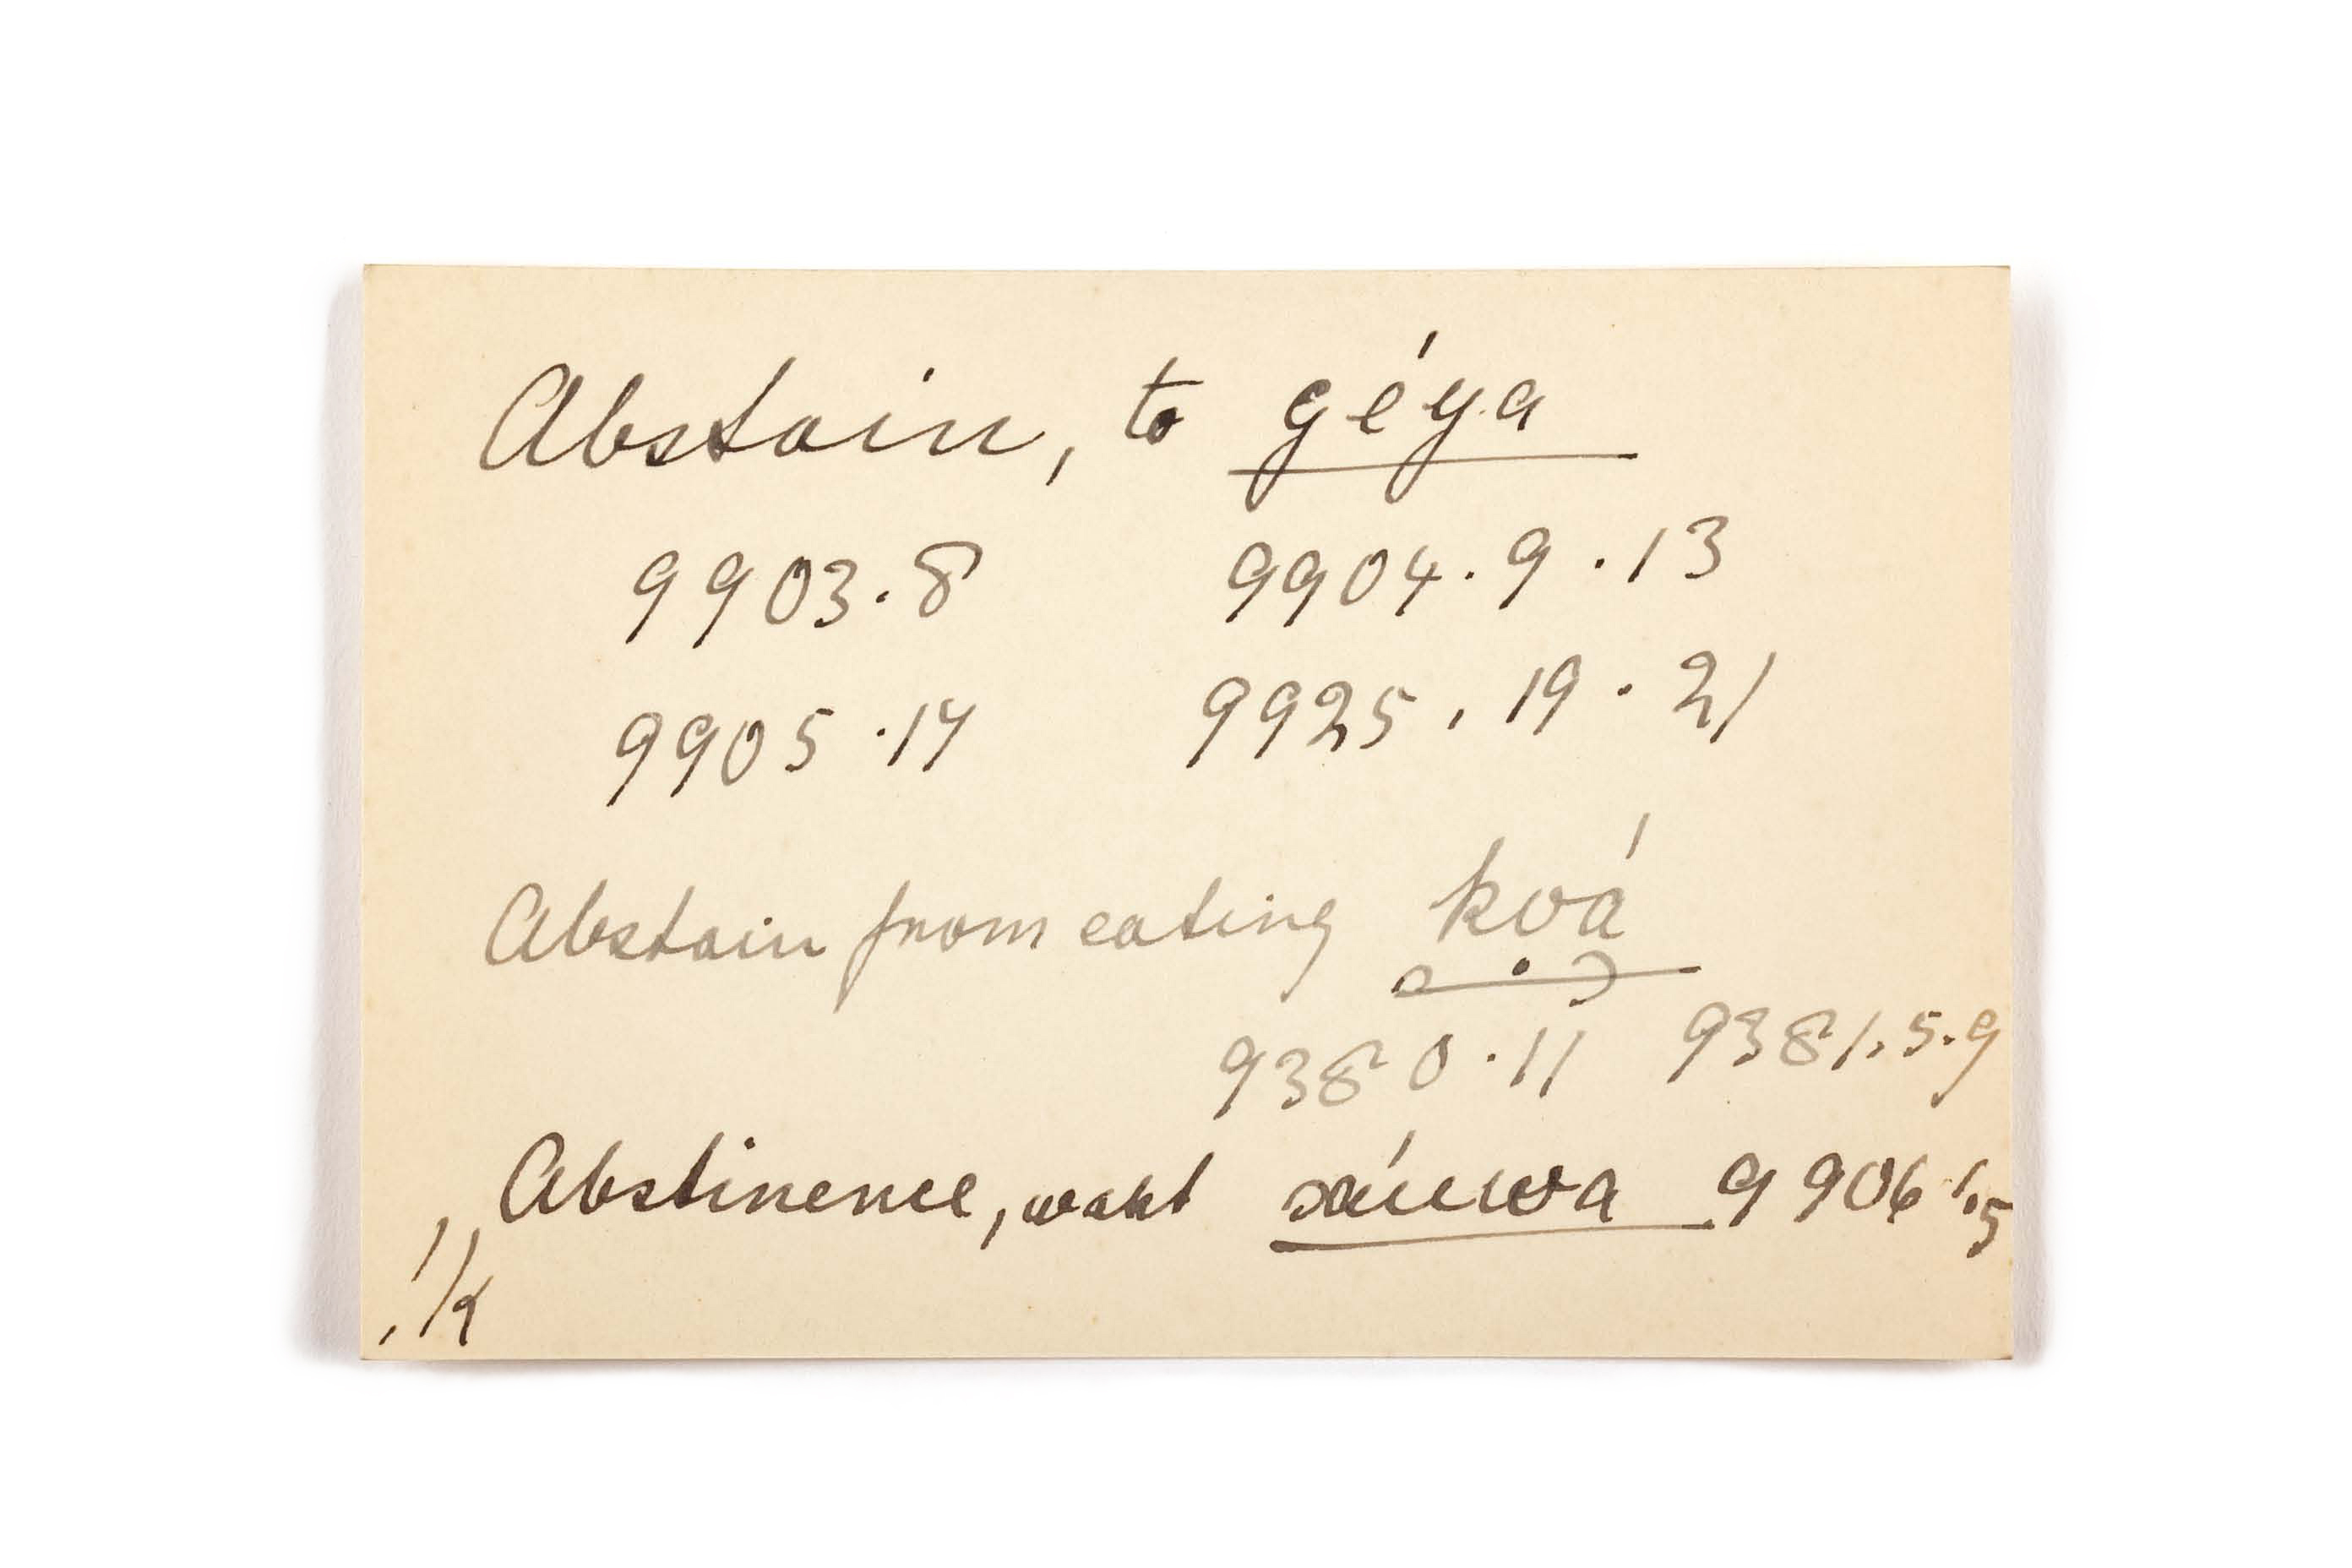 Abstain, to géya
9903.8 9904.9.13
9905.14 9925.19.21
Abstain from eating kwá
9380.11 9381.5.9
Abstinence, want 9906.1.5